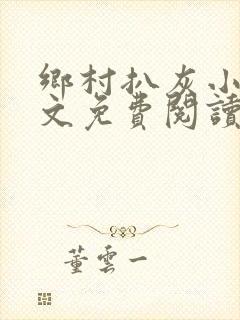 鄉村扒灰小
文免費閱讀
董雲一